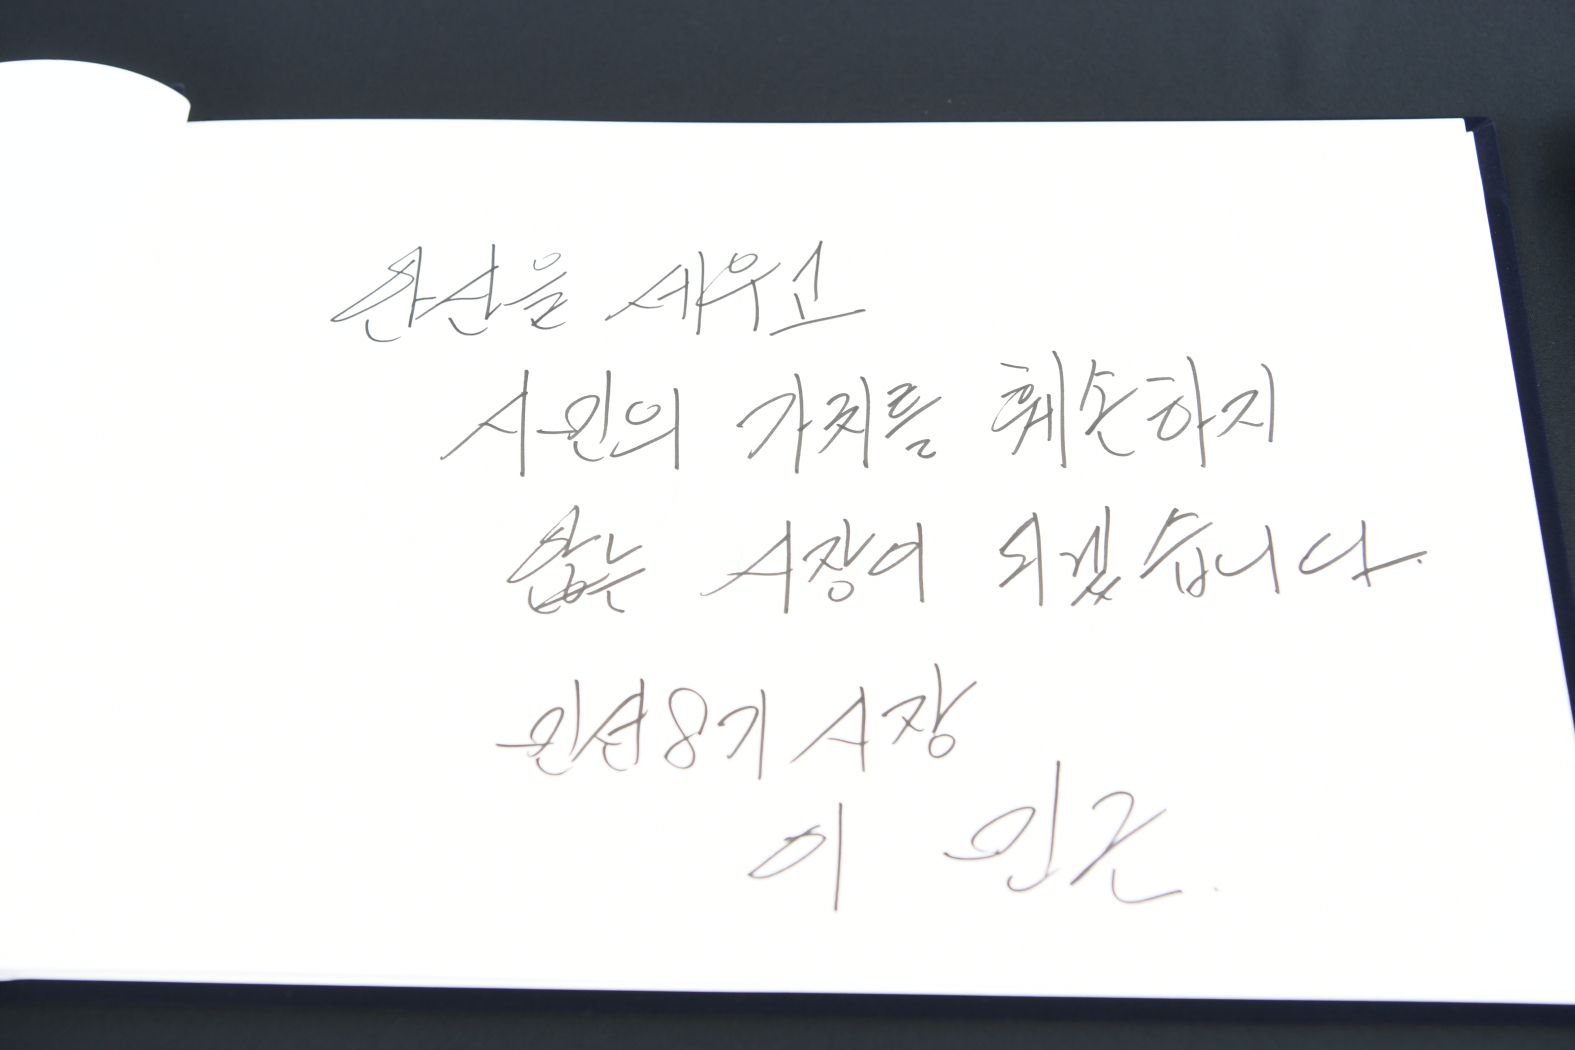 안산을 세우고
시민의 가치를 훼손하지
않는 시장이 되겠습니다.
민선8기 시장
이 민근.